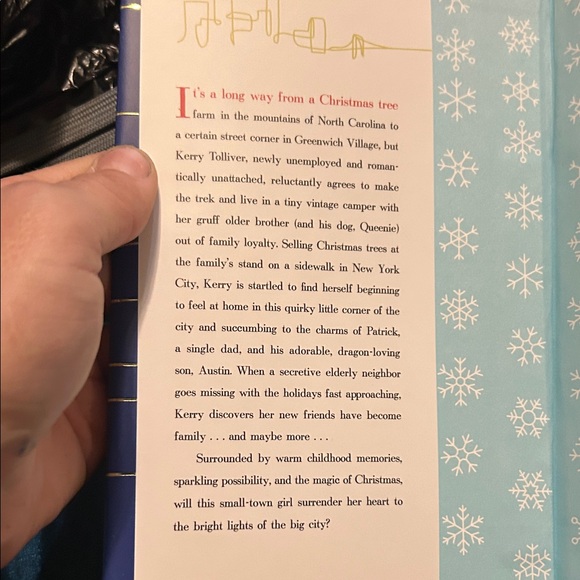 It's a long way from a Christmas tree
farm in the mountains of North Carolina to
a certain street corner in Greenwich Village, but
Kerry Tolliver, newly unemployed and roman-
tically unattached, reluctantly agrees to make
the trek and live in a tiny vintage camper with
her gruff older brother (and his dog, Queenie)
out of family loyalty. Selling Christmas trees at
the family's stand on a sidewalk in New York
City, Kerry is startled to find herself beginning
to feel at home in this quirky little corner of the
city and succumbing to the charms of Patrick,
a single dad, and his adorable, dragon-loving
son, Austin. When a secretive elderly neighbor
goes missing with the holidays fast approaching,
Kerry discovers her new friends have become
family . . . and maybe more . . .
Surrounded by warm childhood memories,
sparkling possibility, and the magic of Christmas,
will this small-town girl surrender her heart to
the bright lights of the big city?